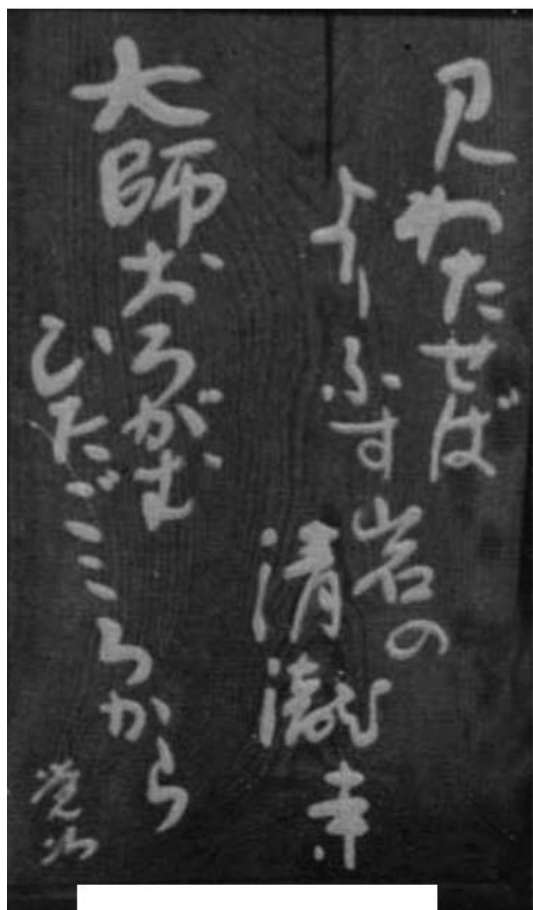 見わたせば
よりふす岩の
清瀧寺
大師おろがむ
ひたごころから